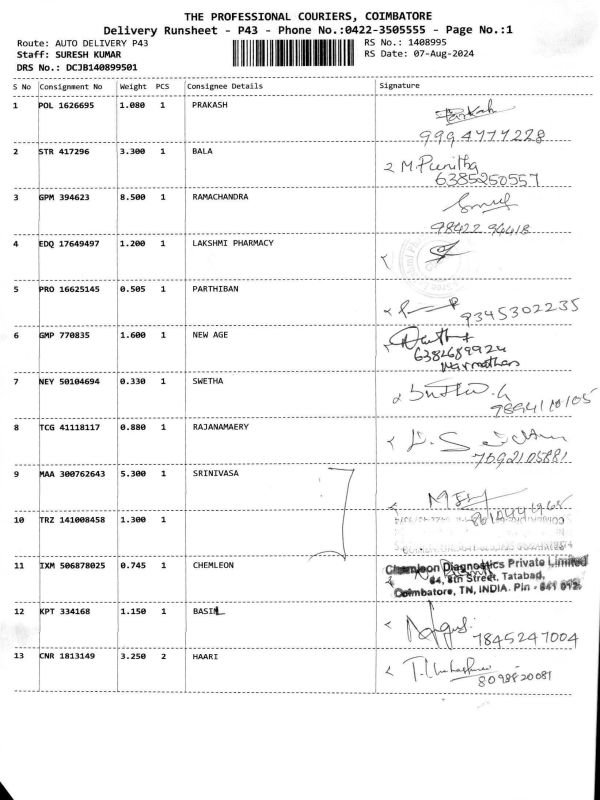 THE PROFESSIONAL COURIERS, COIMBATORE
Delivery Runsheet - P43 - Phone No.:0422-3505555 - Page No.:1
Route: AUTO DELIVERY P43 RS No.: 1408995
Staff: SURESH KUMAR RS Date: 07-Aug-2024
DRS No.: DCJB140899501
S No Consignment No Weight PCS Consignee Details Signature
1 POL 1626695 1.080 1 PRAKASH
9994777228
2 STR 417296 3.300 1 BALA M.Punitha
6385250557
3 GPM 394623 8.500 1 RAMACHANDRA
98422 94418
4 EDQ 17649497 1.200 1 LAKSHMI PHARMACY
5 PRO 16625145 0.505 1 PARTHIBAN
9345302235
6 GMP 770835 1.600 1 NEW AGE
6382689924
7 NEY 50104694 0.330 1 SWETHA
8 TCG 41118117 0.880 1 RAJANAMAERY
7092105881
9 MAA 300762643 5.300 1 SRINIVASA
10 TRZ 141008458 1.300 1
11 IXM 506878025 0.745 1 CHEMLEON
Chemleon Diagnostics Private Limited
64, 8th Street, Tatabad,
Coimbatore, TN, INDIA. Pin - 641 012.
12 KPT 334168 1.150 1 BASIL
7845247004
13 CNR 1813149 3.250 2 HAARI
8098820081